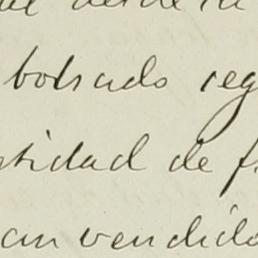 desde
bolsado reg
ntidad de f
an vendido